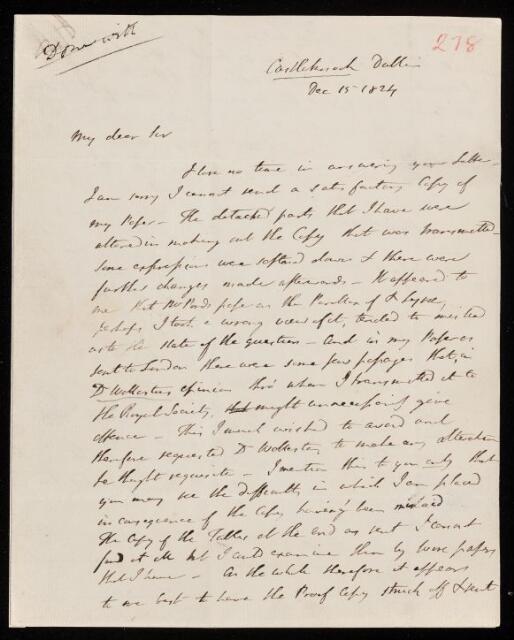 Done with
278
Castleknock Dublin
Dec 15 1824
My dear Sir
I lose no time in answering your Letter
I am sorry I cannot send a satisfactory Copy of
my Paper - The detached parts that I have were
altered in making out the Copy that was transmitted -
Some expressions were softened down & there were
further changes made afterwards - It appeared to
me that Mr Ponds paper on the Parallax of α Lyrae,
perhaps I took a wrong view of it, tended to mislead
as to the state of the question - and in my Paper as
sent to London there were some few passages that, in
Dr Wollastons opinion thro' whom I transmitted it to
the Royal Society, might unnecessarily give
offence - This I much wished to avoid and
therefore requested Dr Wollaston to make any alteration
he thought requisite - I mention this to you only that
you may see the difficulty in which I am placed
in consequence of the Copy having been mislaid
The Copy of the Tables at the end as sent I cannot
find at all but I could examine them by some papers
that I have - On the whole therefore it appears
to me best to have the Proof Copy struck off & sent